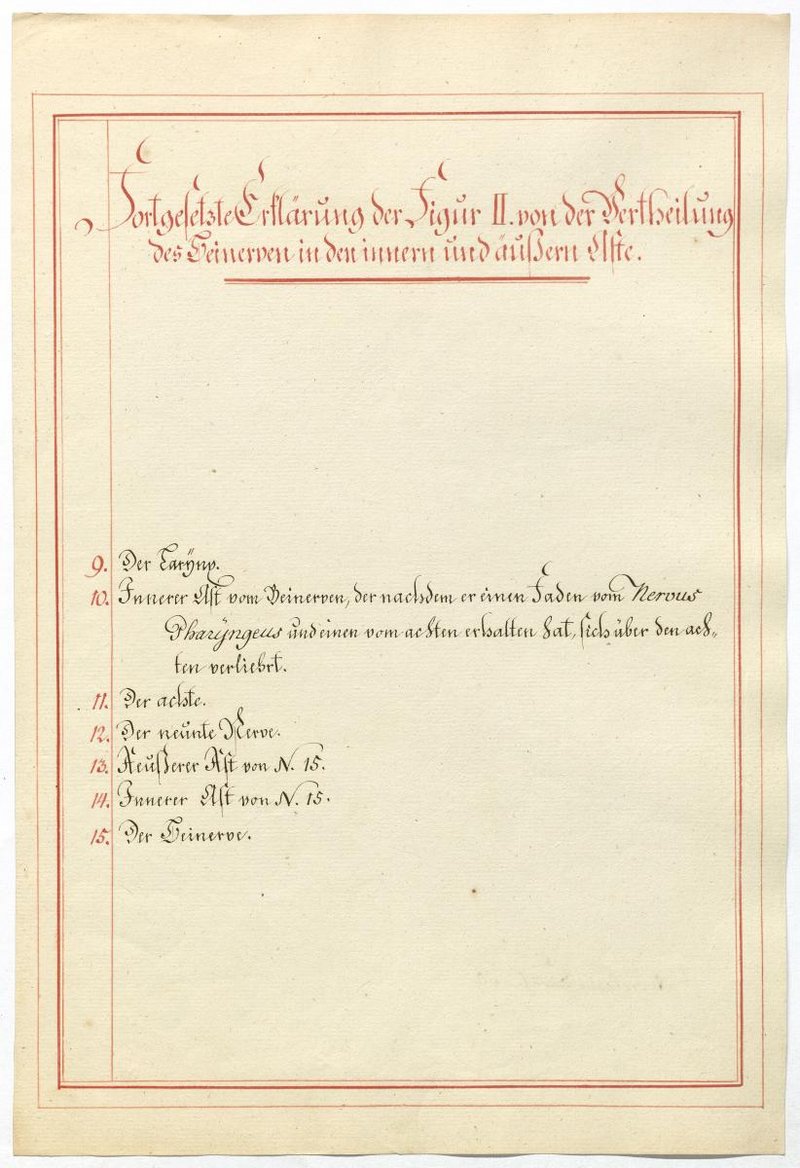 Fortgesetzte Erklärung der Figur II. von der Vertheilung
des Beinerven in den innern und äußern Aste.
9. Der Larÿnx.
10. Innerer Ast vom Beinerven, der nachdem er einen Faden vom Nervus
Pharÿngeus und einen vom achten erhalten hat, sich über den ach-
ten verliehrt.
11. Der achte.
12. Der neunte Nerve.
13. Aeußerer Ast von N. 15.
14. Innerer Ast von N. 15.
15. Der Beinerve.